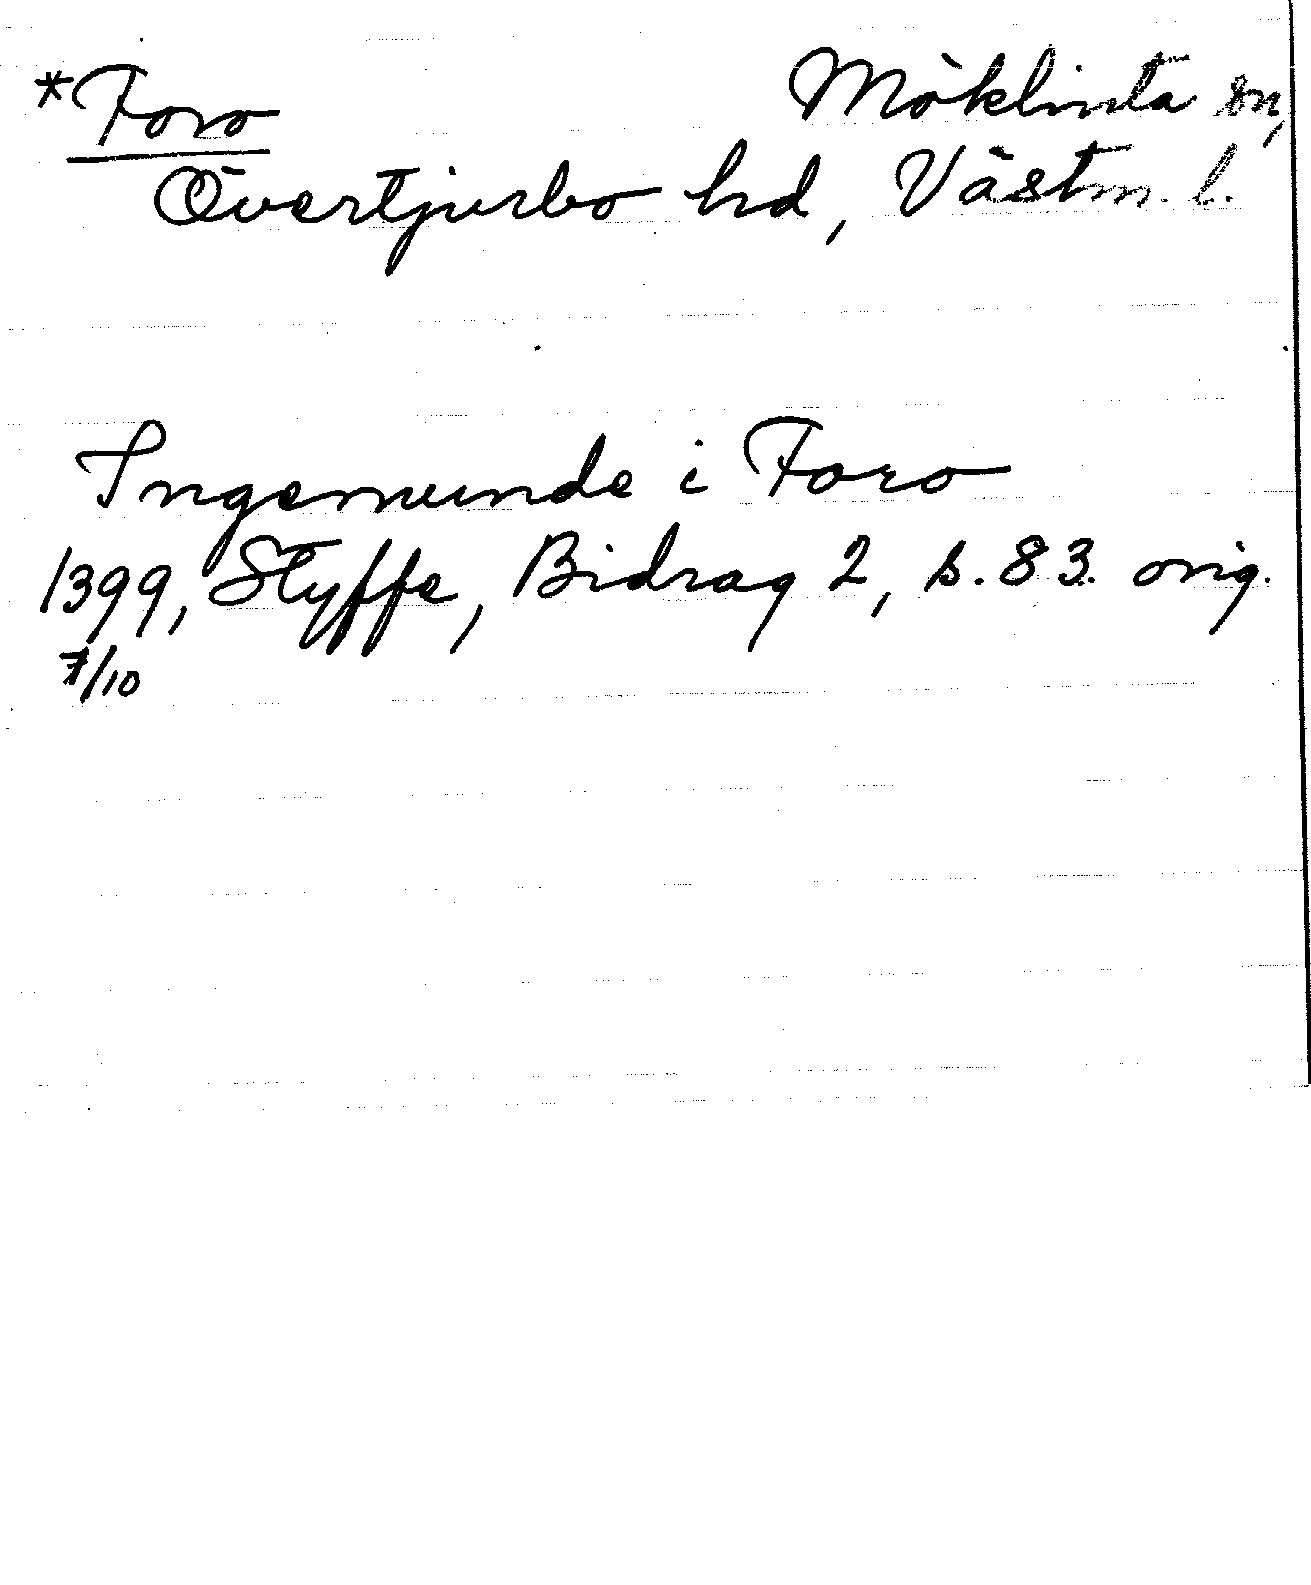 *Foro Möklinta sn,
Övertjurbo hd, Västm. l.
Ingemunde i Foro
1399, Styffe, Bidrag 2, s. 83. orig.
7/10